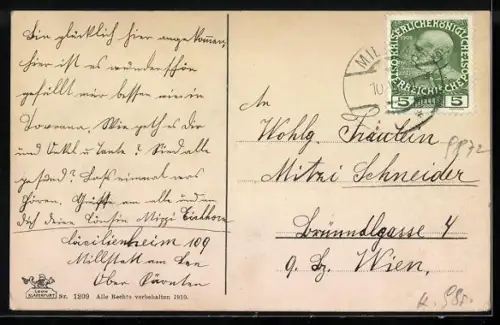 Bin glücklich hier angekommen,
hier ist es wunderschön
gefällt mir besser wie in
Wie geht es dir
und Onkl u Tante? Sind alle
gesund? Laß einmal was
hören. Grüße an alle und an
dich deine Cousine Mizzi Eichhorn
Cäcilienheim 109
Millstatt am See
Ober Kärnten
LEON
KLAGENFURT
Nr. 1209 Alle Rechte vorbehalten 1910.
KAISERLICHE KÖNIGLICHE
ÖSTERREICHISCHE POST
5 HELLER 5
MIL
10
An
Wohlg. Fräulein
Mitzi Schneider
Bründlgasse 4
9. Bz. Wien.